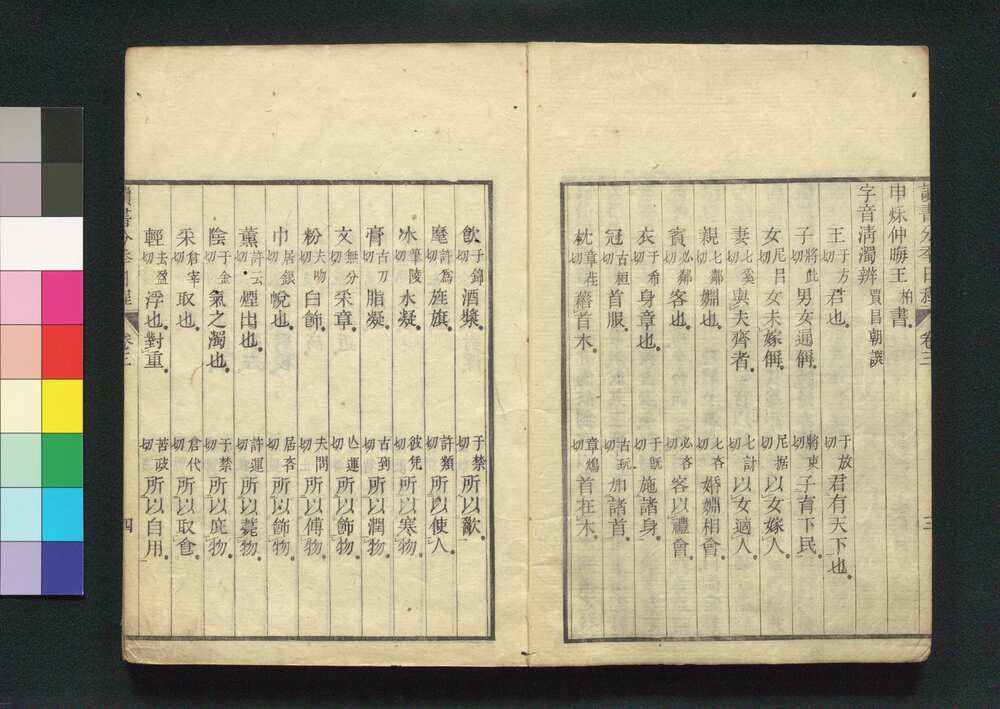 讀書分年日程 卷三 三
申秌仲晦王柏書
字音清濁辨 賈昌朝譔
王 于方切 君也 于放切 君有天下也
子 將此切 男女通偁 將吏切 子育下民
女 尼呂切 女未嫁偁 尼据切 以女嫁人
妻 七奚切 與夫齊者 七計切 以女適人
親 七鄰切 婣也 七吝切 婚婣相會
賓 必鄰切 客也 必吝切 客以禮會
衣 于希切 身章也 于旣切 施諸身
冠 古桓切 首服 古玩切 加諸首
枕 章荏切 首木 章鴆切 首在木
飮 于錦切 酒漿 于禁切 所以歠
麾 許爲切 旌旗 許類切 所以使人
冰 筆陵切 水凝 彼凭切 所以寒物
膏 古刀切 脂凝 古到切 所以潤物
文 無分切 采章 亾運切 所以飾物
粉 夫吻切 白飾 夫問切 所以傅物
巾 居銀切 帨也 居吝切 所以飾物
薰 許云切 煙出也 許運切 所以薨物
陰 于金切 氣之濁也 于禁切 所以庇物
采 倉宰切 取也 倉代切 所以取食
輕 去盈切 浮也對重 苦政切 所以自用
讀書分年日程 卷三 四